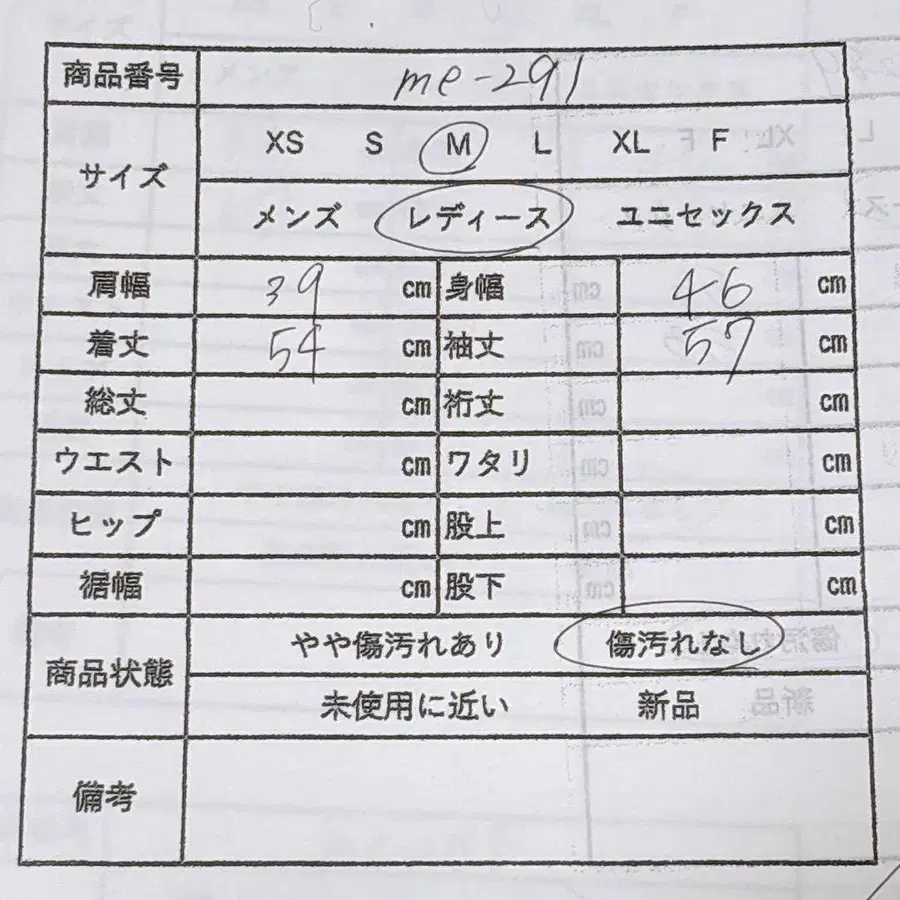 商品番号 me-291
サイズ XS S M L XL F
メンズ レディース ユニセックス
肩幅 39 cm 身幅 46 cm
着丈 54 cm 袖丈 57 cm
総丈 cm 裄丈 cm
ウエスト cm ワタリ cm
ヒップ cm 股上 cm
裾幅 cm 股下 cm
商品状態 やや傷汚れあり 傷汚れなし
未使用に近い 新品
備考